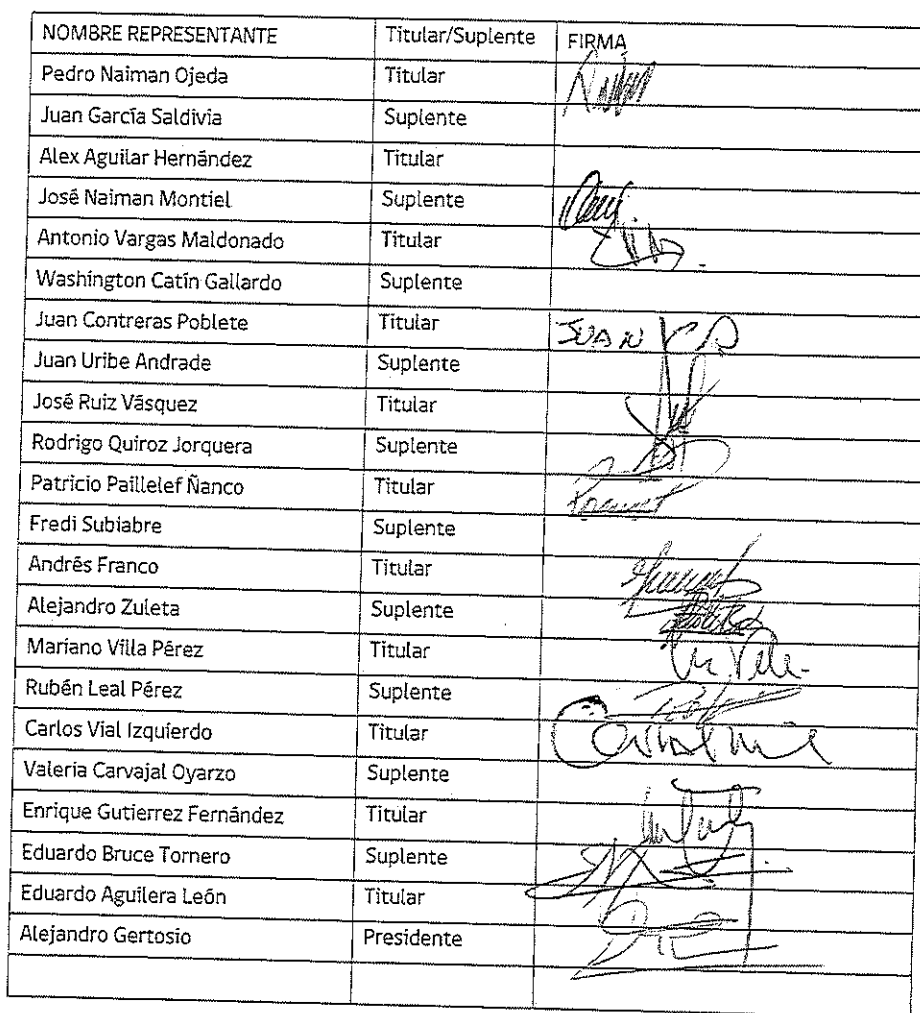 NOMBRE REPRESENTANTE Titular/Suplente FIRMA
Pedro Naiman Ojeda Titular
Juan García Saldivia Suplente
Alex Aguilar Hernández Titular
José Naiman Montiel Suplente
Antonio Vargas Maldonado Titular
Washington Catín Gallardo Suplente
Juan Contreras Poblete Titular JUAN
Juan Uribe Andrade Suplente
José Ruiz Vásquez Titular
Rodrigo Quiroz Jorquera Suplente
Patricio Paillelef Ñanco Titular
Fredi Subiabre Suplente
Andrés Franco Titular
Alejandro Zuleta Suplente
Mariano Villa Pérez Titular
Rubén Leal Pérez Suplente
Carlos Vial Izquierdo Titular
Valeria Carvajal Oyarzo Suplente
Enrique Gutierrez Fernández Titular
Eduardo Bruce Tornero Suplente
Eduardo Aguilera León Titular
Alejandro Gertosio Presidente